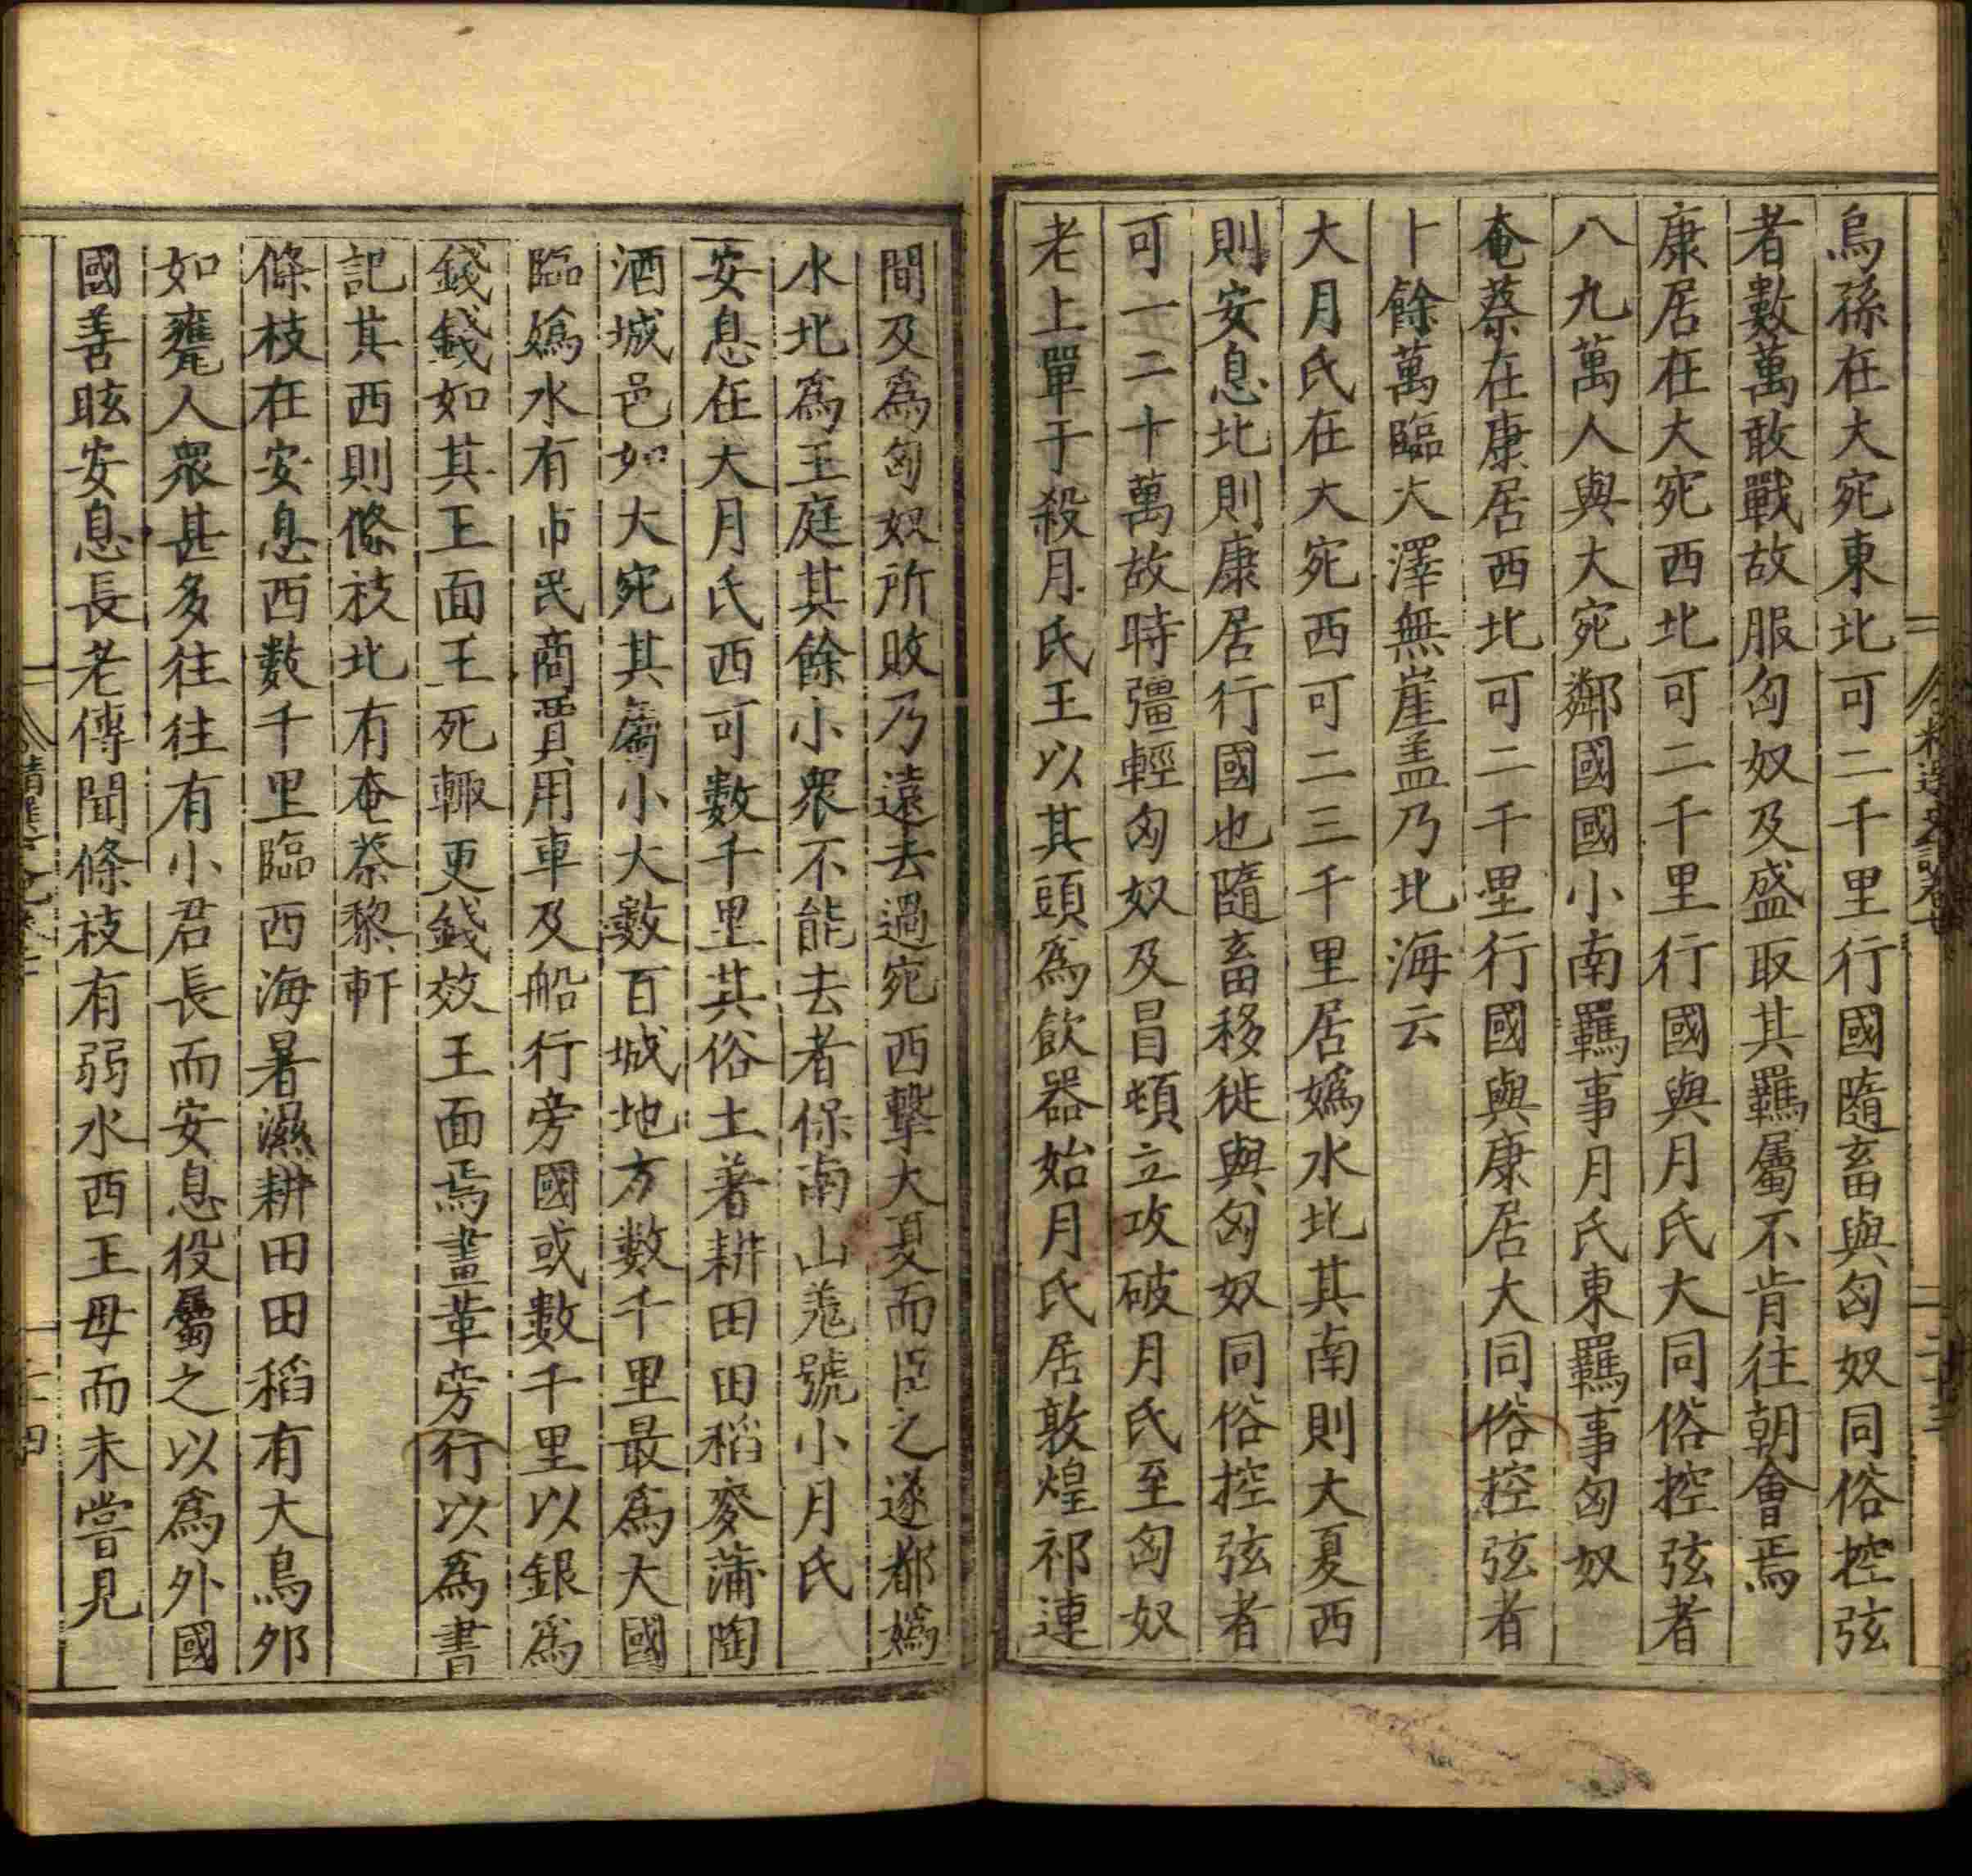 烏孫在大宛東北可二千里行國隨畜與匈奴同俗控弦
者數萬敢戰故服匈奴及盛取其羈屬不肯往朝會焉
康居在大宛西北可二千里行國與月氏大同俗控弦者
八九萬人與大宛鄰國國小南羈事月氏東羈事匈奴
奄蔡在康居西北可二千里行國與康居大同俗控弦者
十餘萬臨大澤無崖盖乃北海云
大月氏在大宛西可二三千里居嬀水北其南則大夏西
則安息北則康居行國也隨畜移徙與匈奴同俗控弦者
可一二十萬故時彊輕匈奴及冒頓立攻破月氏至匈奴
老上單于殺月氏王以其頭爲飲器始月氏居敦煌祁連
間及爲匈奴所敗乃遠去過宛西擊大夏而臣之遂都嬀
水北爲王庭其餘小衆不能去者保南山羌號小月氏
安息在大月氏西可數千里其俗土著耕田田稻麥蒲陶
酒城邑如大宛其屬小大數百城地方數千里最爲大國
臨嬀水有市民商賈用車及船行旁國或數千里以銀爲
錢錢如其王面王死輙更錢效王面焉畫革旁行以爲書
記其西則條枝北有奄蔡黎軒
條枝在安息西數千里臨西海暑濕耕田田稻有大鳥卵
如甕人衆甚多往往有小君長而安息役屬之以爲外國
國善眩安息長老傳聞條枝有弱水西王母而未嘗見
二十三
二十四